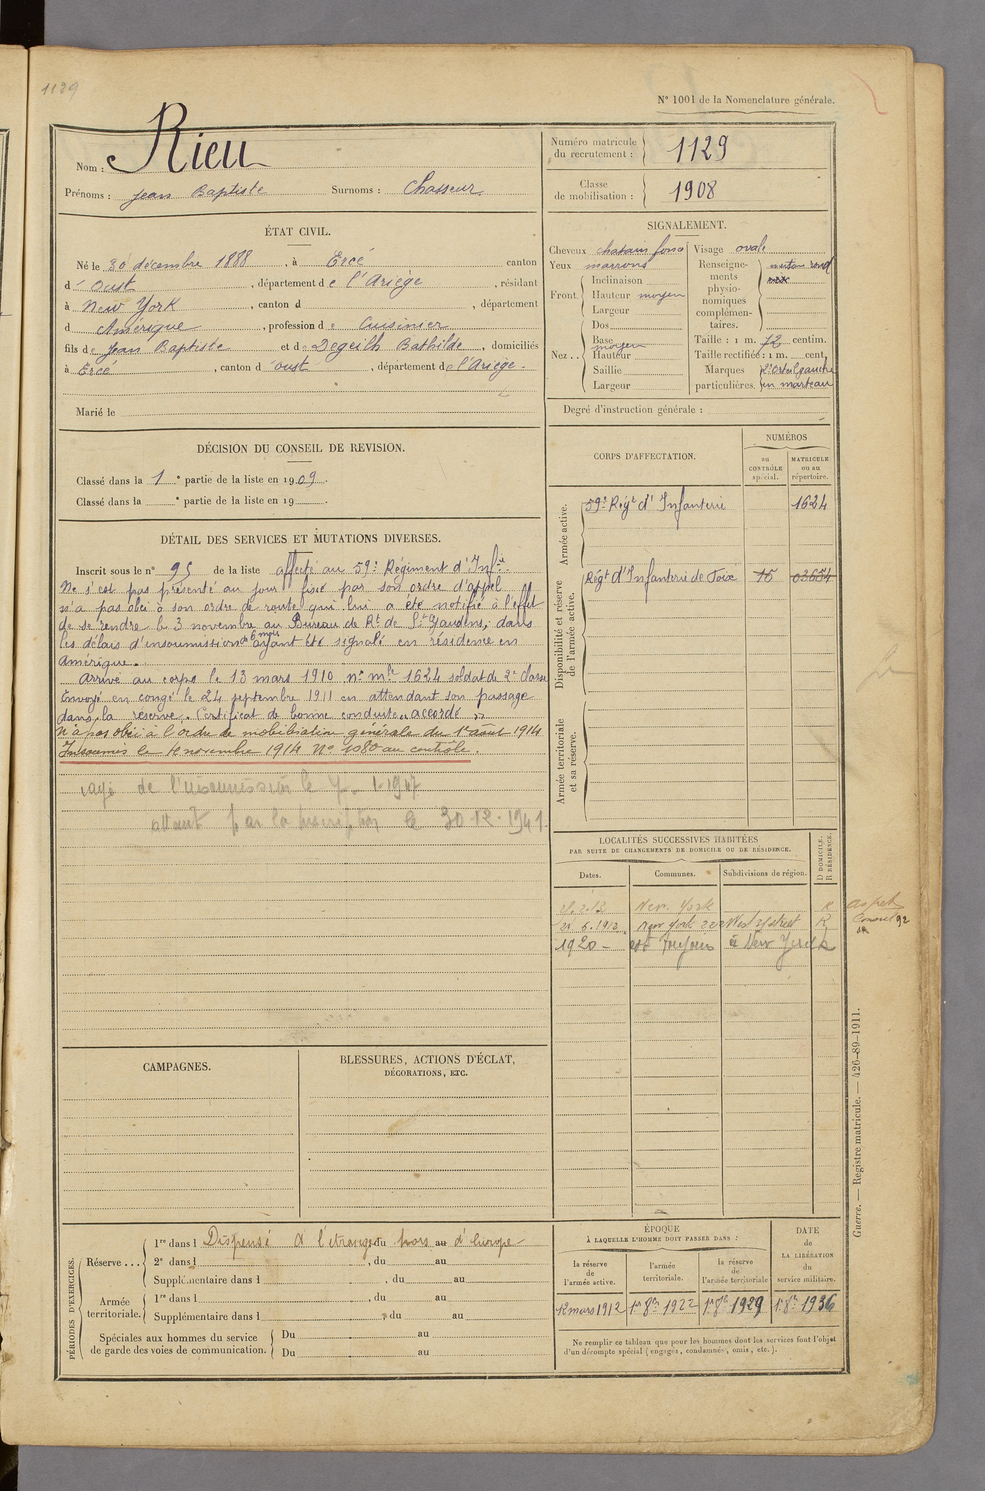 1129
N° 1001 de la Nomenclature générale.
Nom : Rieu
Prénoms : Jean Baptiste Surnoms : Chasseur
Numéro matricule du recrutement : 1129
Classe de mobilisation : 1908
ÉTAT CIVIL.
Né le 30 décembre 1888, à Ercé canton
d' Oust, département de l'Ariège, résidant
à New York, canton d, département
d Amérique, profession de Cuisinier
fils de Jean Baptiste et de Degeilh Bathilde, domiciliés
à Ercé, canton d'Oust, département de l'Ariège.
Marié le
SIGNALEMENT.
Cheveux chatain foncé
Yeux marrons
Front. Inclinaison
Hauteur moyen
Largeur
Dos
Nez . . Base moyen
Hauteur
Saillie
Largeur
Visage ovale
Renseignements physionomiques complémentaires. menton rond
Taille : 1 m. 72 centim.
Taille rectifiée : 1 m. cent.
Marques particulières. l'orteil gauche
en marteau
Degré d'instruction générale :
DÉCISION DU CONSEIL DE REVISION.
Classé dans la 1e partie de la liste en 1909.
Classé dans la e partie de la liste en 19
DÉTAIL DES SERVICES ET MUTATIONS DIVERSES.
Inscrit sous le n° 95 de la liste affecté au 59e Régiment d'Infie.
Ne s'est pas présenté au jour fixé par son ordre d'appel
n'a pas obéi à son ordre de route qui lui a été notifié à l'effet
de se rendre le 3 novembre au Bureau de Rt de St Gaudens, dans
les délais d'insoumission de 6 mois ayant été signalé en résidence en
Amérique.
Arrivé au corps le 13 mars 1910 n° mle 1624 soldat de 2e classe
Envoyé en congé le 24 septembre 1911 en attendant son passage
dans la réserve. Certificat de bonne conduite "accordé".
N'a pas obéi à l'ordre de mobilisation générale du 1er août 1914
Insoumis le novembre 1914 N° 1080 au contrôle.
rayé de l'insoumission le 1-1947
atteint par la prescription le 30-12-1941.
CORPS D'AFFECTATION.
NUMÉROS
au CONTRÔLE spécial.
MATRICULE ou au répertoire.
Armée active.
59e Régt d'Infanterie 1624
Disponibilité et réserve de l'armée active.
Régt d'Infanterie de Foix
Armée territoriale et sa réserve.
LOCALITÉS SUCCESSIVES HABITÉES
PAR SUITE DE CHANGEMENTS DE DOMICILE OU DE RÉSIDENCE.
D DOMICILE. R RÉSIDENCE.
Dates. Communes. Subdivisions de région.
New York R
21.6.1912 New York 222 West street R
1920 - est toujours à New York R
CAMPAGNES.
BLESSURES, ACTIONS D'ÉCLAT,
DÉCORATIONS, ETC.
Guerre. — Registre matricule. — 426-89-1911.
PÉRIODES D'EXERCICES.
Réserve . . . 1re dans l Dispensé à l'étranger du hors au d'Europe
2e dans l , du au
Supplémentaire dans l , du au
Armée territoriale. 1re dans l , du au
Supplémentaire dans l , du au
Spéciales aux hommes du service de garde des voies de communication. Du au
Du au
ÉPOQUE
À LAQUELLE L'HOMME DOIT PASSER DANS :
la réserve de l'armée active.
l'armée territoriale.
la réserve de l'armée territoriale
DATE de LA LIBÉRATION du service militaire.
12 mars 1912 1er 8bre 1922 1er 8bre 1929 1er 8bre 1936
Ne remplir ce tableau que pour les hommes dont les services font l'objet
d'un décompte spécial (engagés, condamnés, omis, etc.).